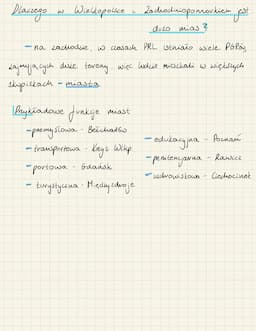 Dlaczego w Wielkopolsce i Zachodniopomorskiem jest
dużo miast?
- na zachodzie, w czasach PRL istniało wiele PGRów,
zajmujących duże tereny, więc ludzie mieszkali w większych
skupiskach - miasta
Przykładowe funkcje miast
- przemysłowa - Bełchatów
- transportowa - Krzyż Wlkp.
- portowa - Gdańsk
- turystyczna - Międzyzdroje
- edukacyjna - Poznań
- penitencjarna - Rawicz
- uzdrowiskowa - Ciechocinek